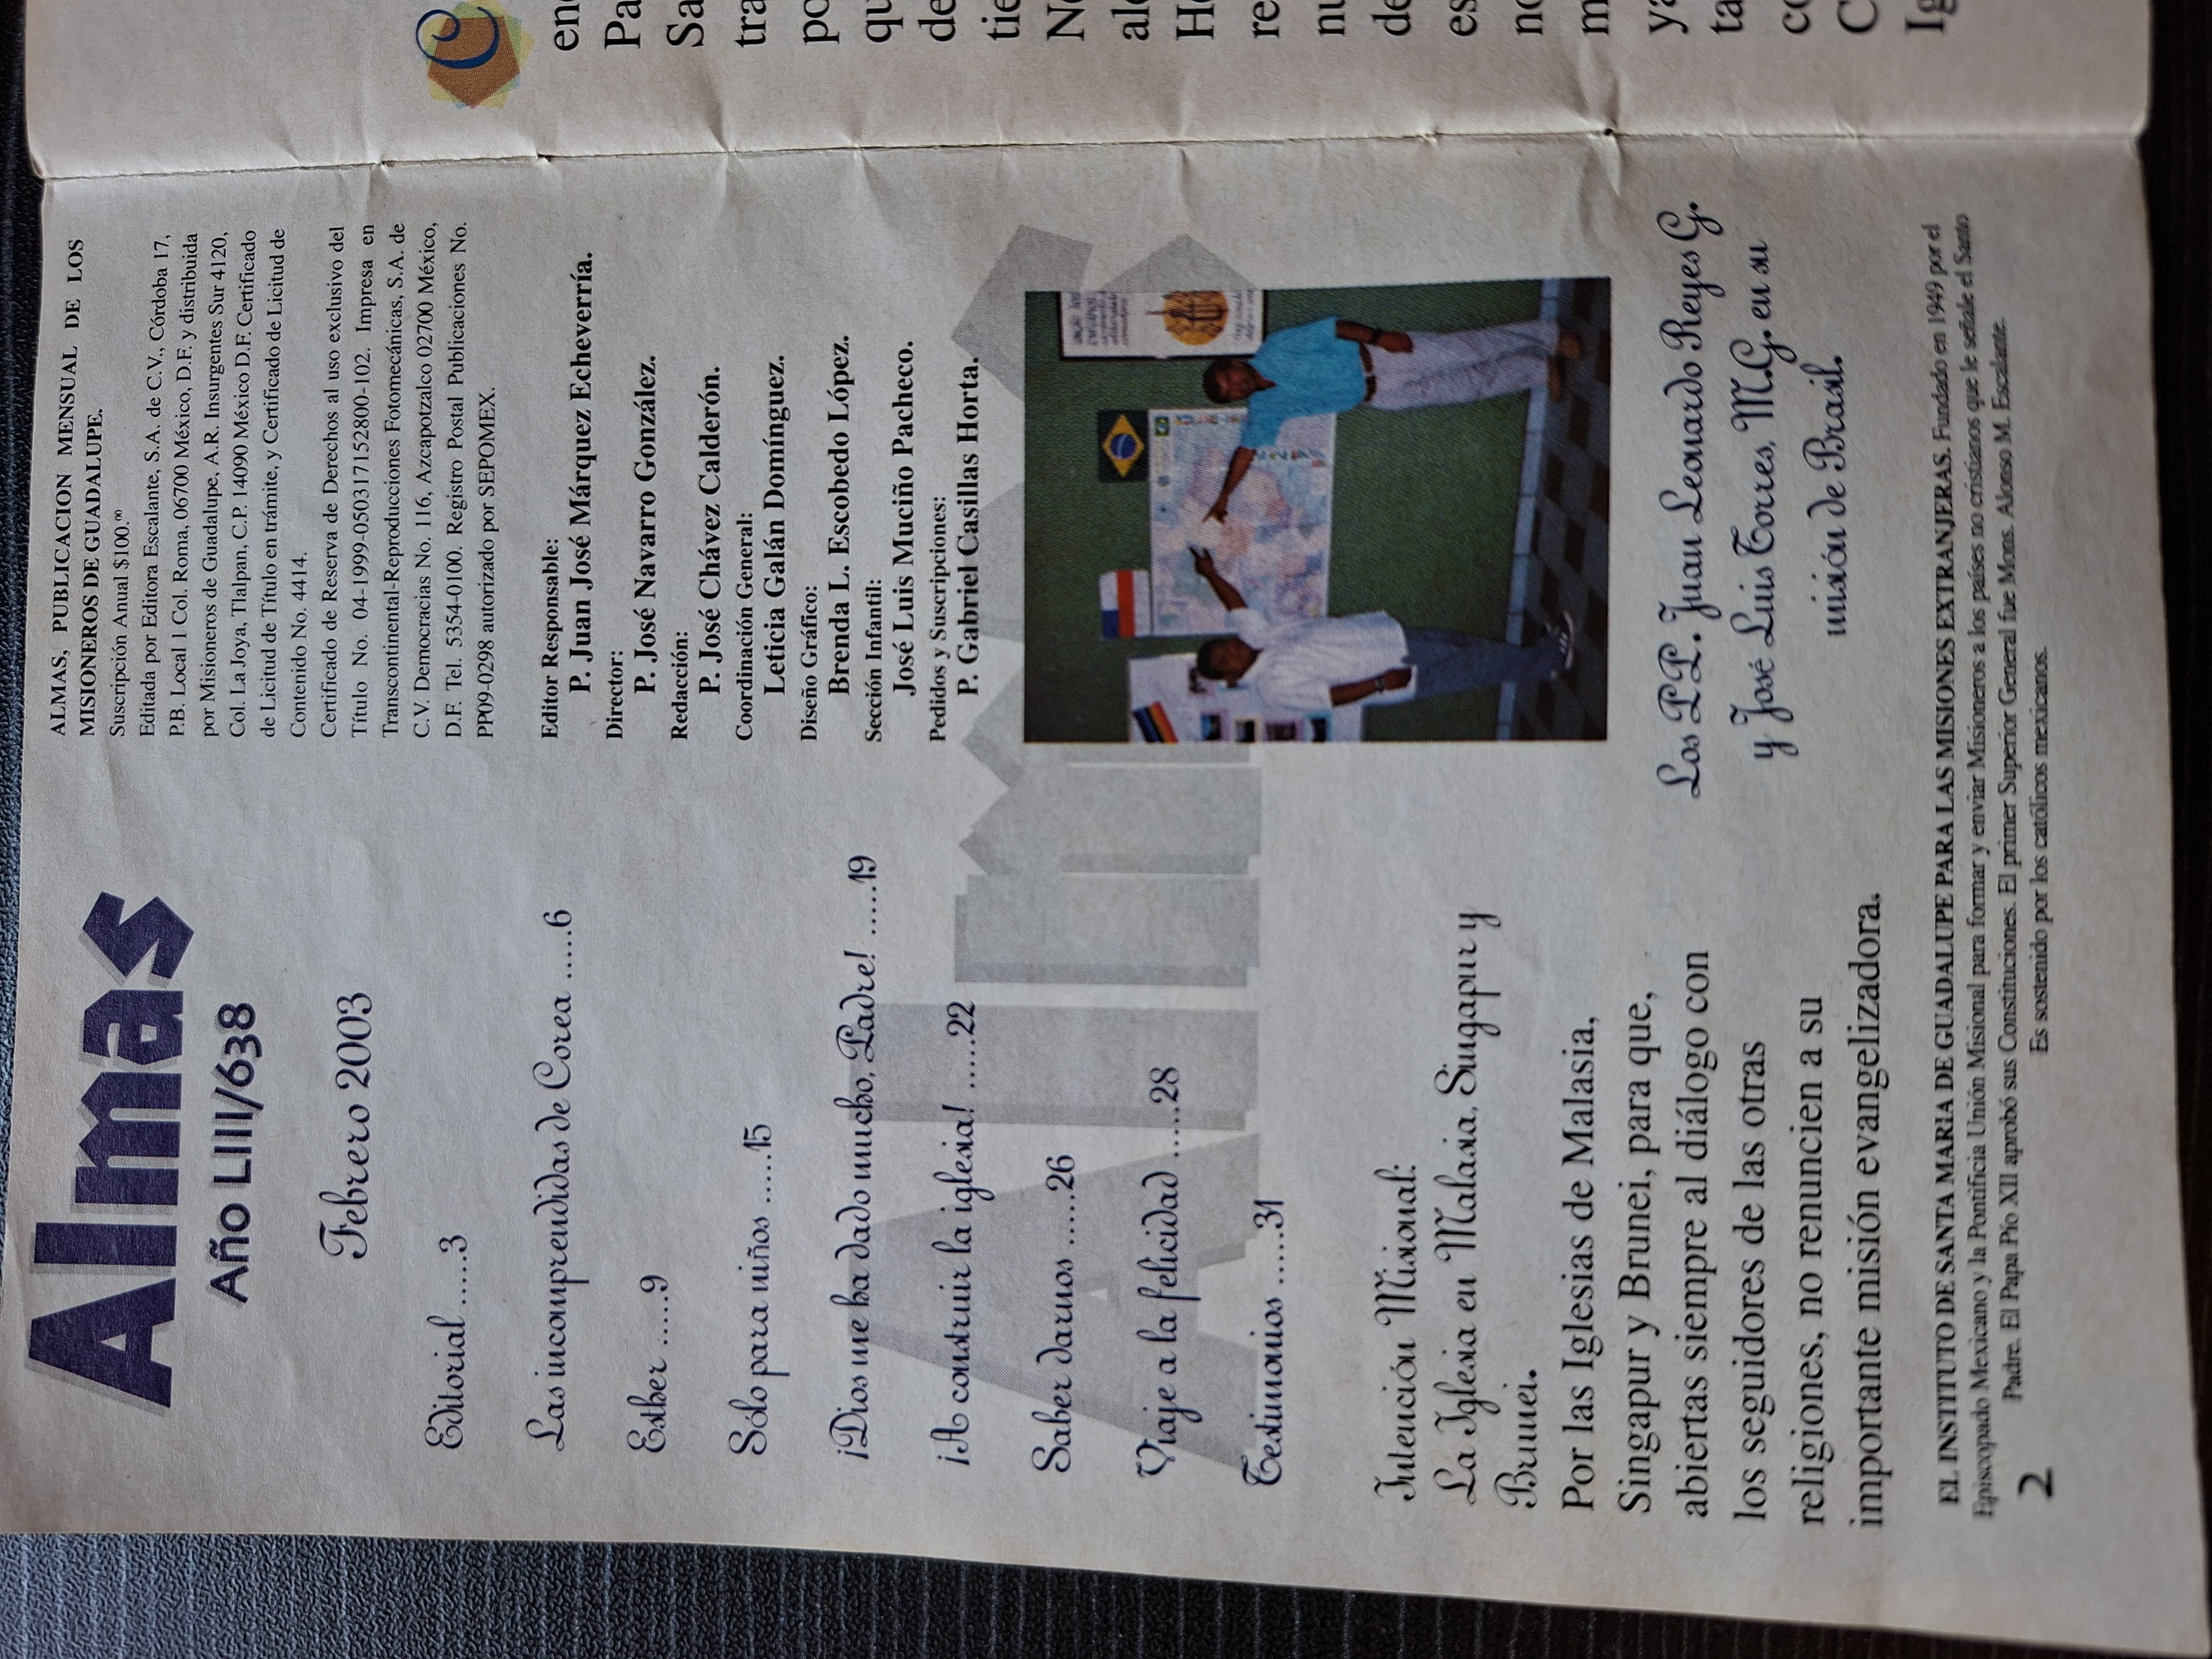 Almas
Año LIII/638
Febrero 2003
Editorial .....3
Las incomprendidas de Corea .....6
Esther .....9
Sólo para niños .....15
¡Dios me ha dado mucho, Padre! .....19
¡A construir la iglesia! .....22
Saber darnos .....26
Viaje a la felicidad .....28
Testimonios .....31
Intención Misional:
La Iglesia en Malasia, Singapur y
Brunei.
Por las Iglesias de Malasia,
Singapur y Brunei, para que,
abiertas siempre al diálogo con
los seguidores de las otras
religiones, no renuncien a su
importante misión evangelizadora.
ALMAS, PUBLICACION MENSUAL DE LOS
MISIONEROS DE GUADALUPE.
Suscripción Anual $100.⁰⁰
Editada por Editora Escalante, S.A. de C.V., Córdoba 17,
P.B. Local 1 Col. Roma, 06700 México, D.F. y distribuida
por Misioneros de Guadalupe, A.R. Insurgentes Sur 4120,
Col. La Joya, Tlalpan, C.P. 14090 México D.F. Certificado
de Licitud de Título en trámite, y Certificado de Licitud de
Contenido No. 4414.
Certificado de Reserva de Derechos al uso exclusivo del
Título No. 04-1999-050317152800-102. Impresa en
Transcontinental-Reproducciones Fotomecánicas, S.A. de
C.V. Democracias No. 116, Azcapotzalco 02700 México,
D.F. Tel. 5354-0100. Registro Postal Publicaciones No.
PP09-0298 autorizado por SEPOMEX.
Editor Responsable:
P. Juan José Márquez Echeverría.
Director:
P. José Navarro González.
Redacción:
P. José Chávez Calderón.
Coordinación General:
Leticia Galán Domínguez.
Diseño Gráfico:
Brenda L. Escobedo López.
Sección Infantil:
José Luis Muciño Pacheco.
Pedidos y Suscripciones:
P. Gabriel Casillas Horta.
Los PP. Juan Leonardo Reyes G.
y José Luis Torres, M.G. en su
misión de Brasil.
EL INSTITUTO DE SANTA MARIA DE GUADALUPE PARA LAS MISIONES EXTRANJERAS. Fundado en 1949 por el
Episcopado Mexicano y la Pontificia Unión Misional para formar y enviar Misioneros a los países no cristianos que le señale el Santo
Padre. El Papa Pío XII aprobó sus Constituciones. El primer Superior General fue Mons. Alonso M. Escalante.
Es sostenido por los católicos mexicanos.
2
C